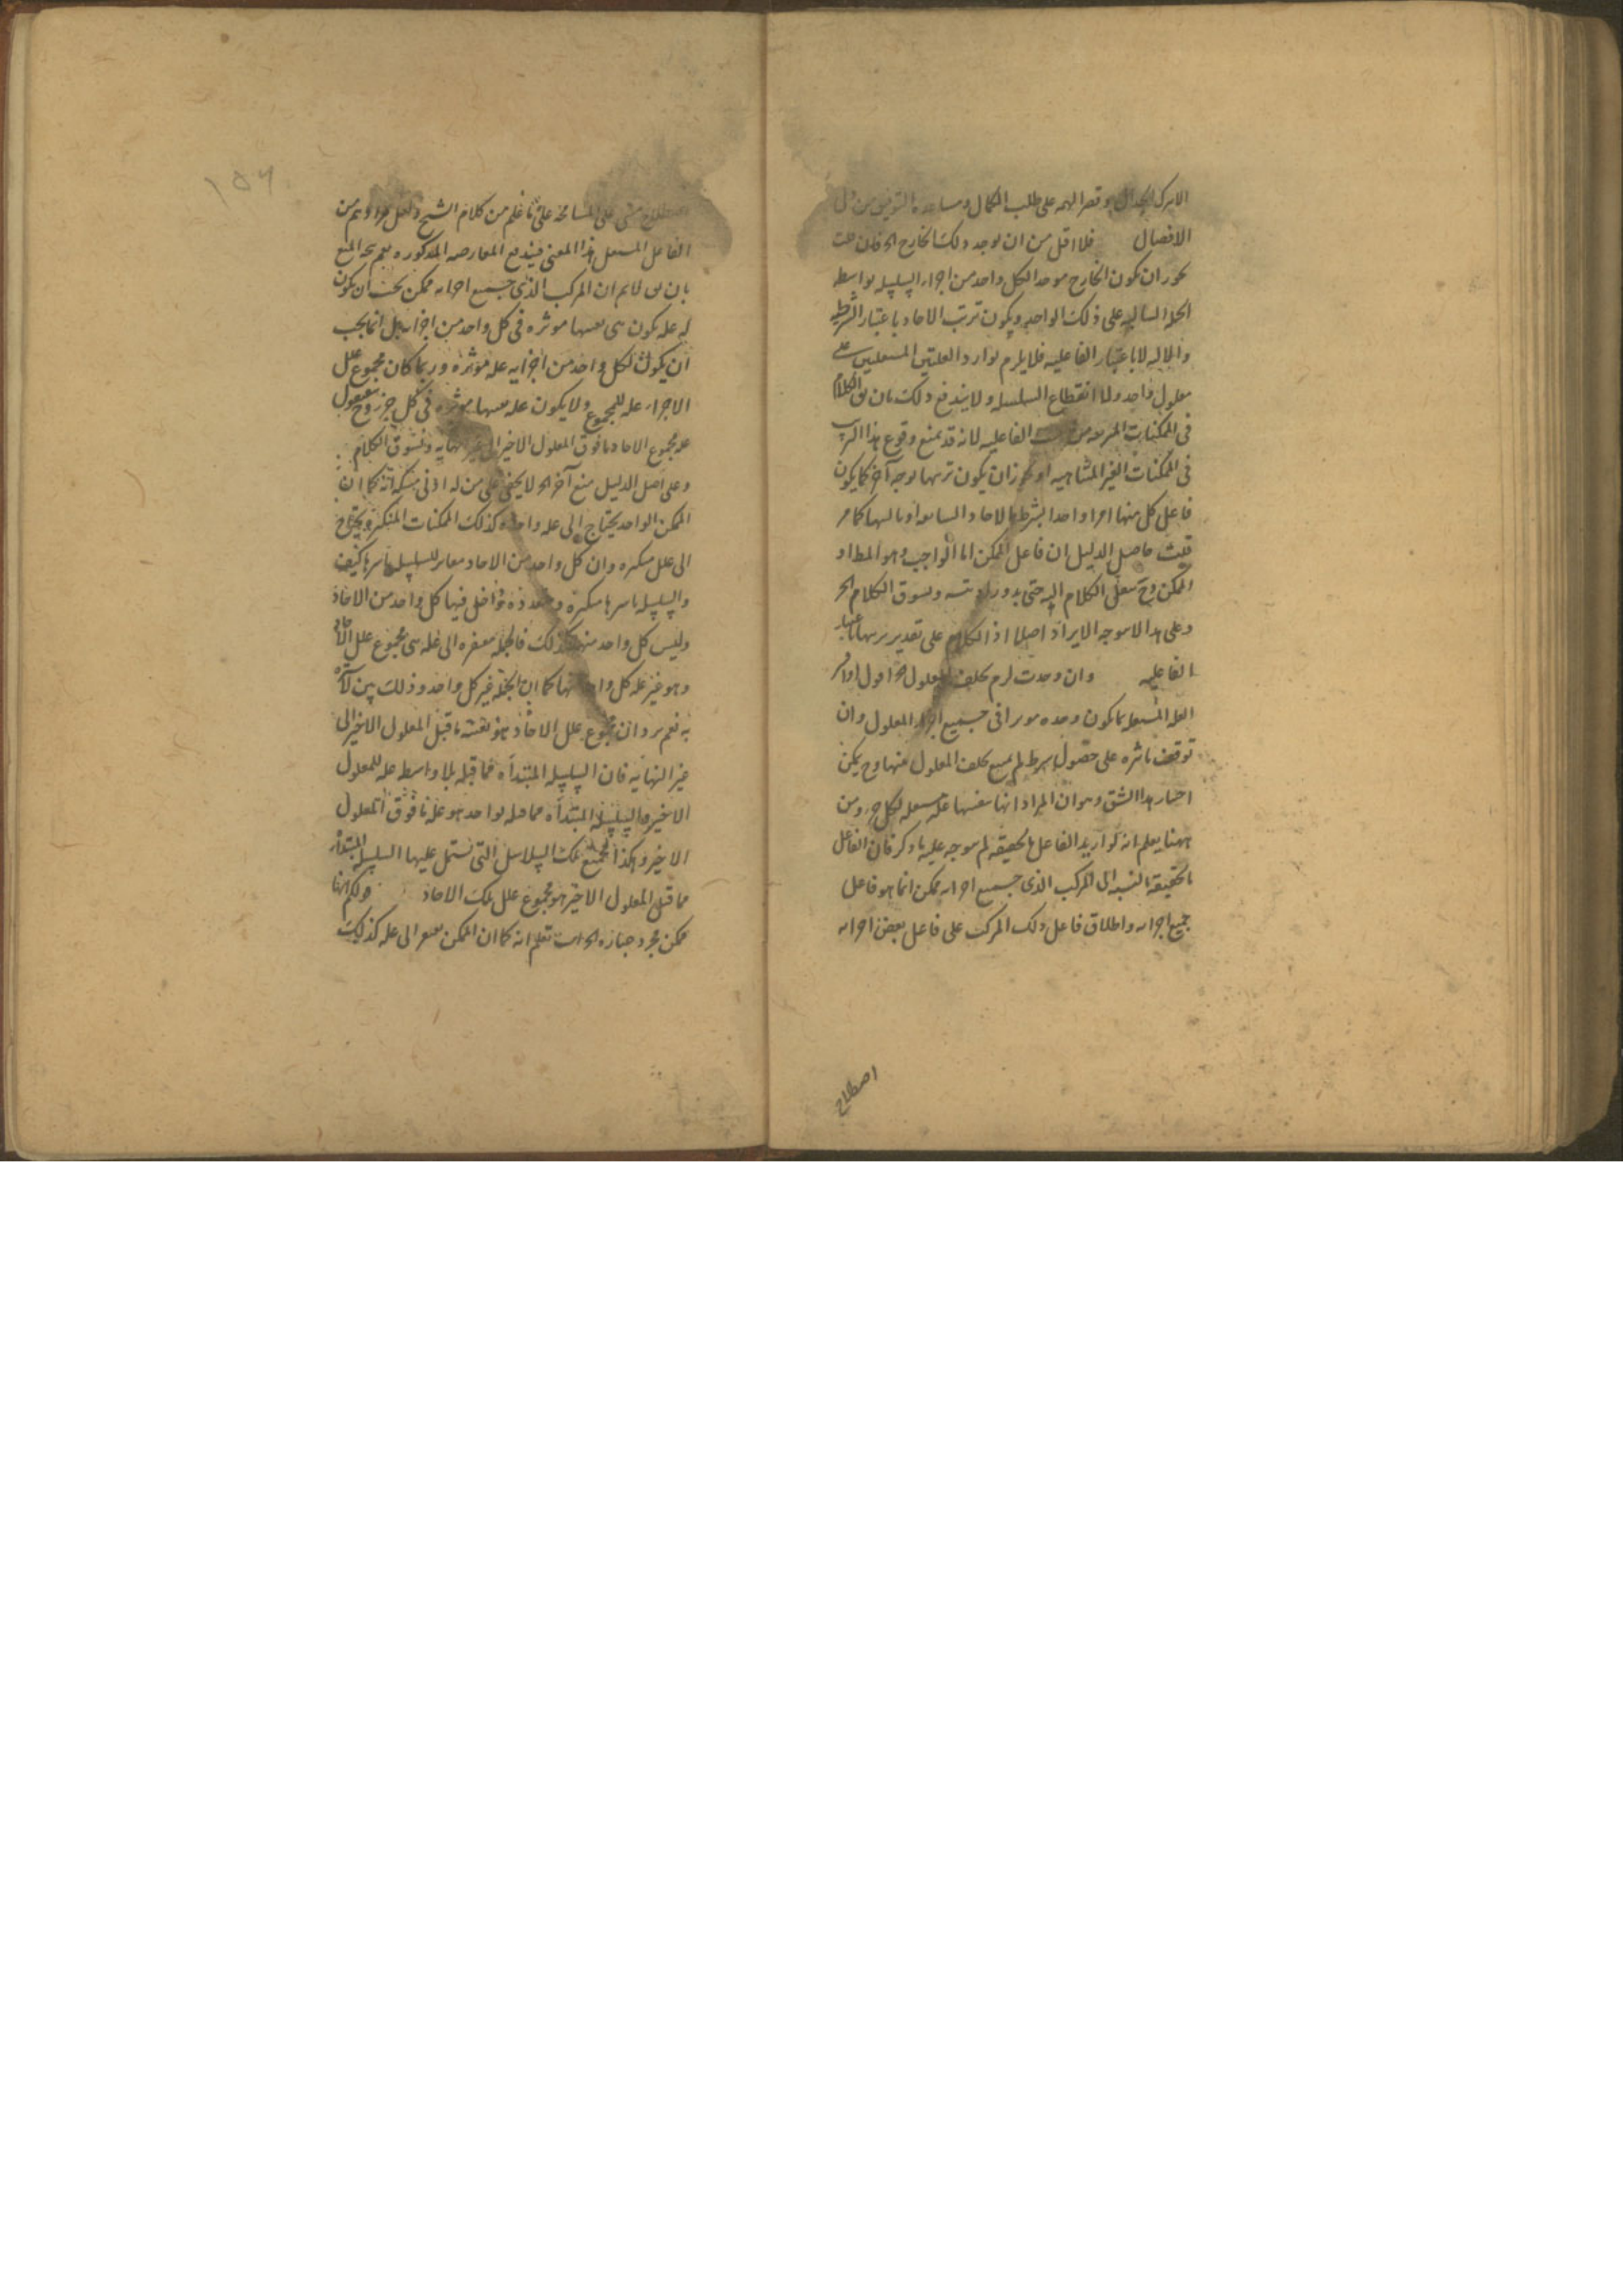 الا بترك الجدال وقصر الهمه على طلب الكمال ومساعده التوفيق من
الافضال فلا اقل من ان يوجد ذلك الخارج الخ فان قلت
يجوز ان يكون الخارج موجدا لكل واحد من اجزاء السلسله بواسطه
الجمله السابقه على ذلك الواحد ويكون ترتب الاحاد باعتبار الشرطيه
والاليه لا باعتبار الفاعليه فلا يلزم توارد العلتين المستقلتين على
معلول واحد ولا انقطاع السلسله ولا يندفع ذلك بان يق الكلام
فى الممكنات المترتبه من الفاعليه لانه قد يمنع وقوع هذا الترتيب
فى الممكنات الغير المتناهيه او يجوز ان يكون ترتبها بوجه آخر كما يكون
فاعل كل منها امرا واحدا بشرط الاحاد السابقه او بالتها كما مر
قلت حاصل الدليل ان فاعل الممكن اما الواجب وهو المط او
الممكن وح ننقل الكلام اليه حتى يدور او يتسه ويسوق الكلام الخ
وعلى هذا لا يتوجه الايراد اصلا اذ الكلام على تقدير ترتبها باعتبار
الفاعليه وان وجدت لزم تخلف المعلول الخ اقول اذا
العله المستقله ما يكون وحده موثرا فى جميع اجزاء المعلول وان
توقف تاثيره على حصول شرط لم يمتنع تخلف المعلول عنها وح يمكن
اختيار هذا الشق وهو ان المراد انها بنفسها عله مستقله لكل جزء ومن
ههنا يعلم انه لو اريد الفاعل بالحقيقه لم يتوجه عليه ما ذكر فان الفاعل
بالحقيقه بالنسبه الى المركب الذى جميع اجزائه ممكن انما هو فاعل
جميع اجزائه واطلاق فاعل ذلك المركب على فاعل بعض اجزائه
اصطلاح
١٥٦
اصطلاح مبنى على المسامحه على ما علم من كلام الشيخ ولعل مرادهم من
الفاعل المستقل هذا المعنى فيندفع المعارضه المذكوره نعم يتجه المنع
بان يق لا نم ان المركب الذى جميع اجزائه ممكن يجب ان يكون
له عله يكون هى بعينها موثره فى كل واحد من اجزائه بل انما يجب
ان يكون لكل واحد من اجزايه عله موثره وربما كان مجموع علل
الاجزاء عله للمجموع ولا يكون عله بعينها موثره فى كل جزء وح نقول
عله مجموع الاحاد ما فوق المعلول الاخير الى غير النهايه ونسوق الكلام
وعلى اصل الدليل منع آخر الخ لا يخفى على من له ادنى مسكه انه كما ان
الممكن الواحد يحتاج الى عله واحده كذلك الممكنات المتكثره يحتاج
الى علل متكثره وان كل واحد من الاحاد مغاير للسلسله باسرها كيف
والسلسله باسرها متكثره ومتعدده تداخل فيها كل واحد من الاحاد
وليس كل واحد منها كذلك فالجمله مفتقره الى عله هى مجموع علل الاحاد
وهو غير عله كل واحد منها كما ان الجمله غير كل واحد وذلك بين لا ستره
به نعم يرد ان مجموع علل الاحاد هو نفسه ما قبل المعلول الاخير الى
غير النهايه فان السلسله المبتدأه مما قبله بلا واسطه عله للمعلول
الاخير والسلسله المبتدأه مما قبله بواحد هو عله ما فوق المعلول
الاخير وهكذا فجميع تلك السلاسل التى تشتمل عليها السلسله المبتدأه
مما قبل المعلول الاخير هو مجموع علل تلك الاحاد قولكم انها
ممكن مجرد عباره الخ انت تعلم انه كما ان الممكن مفتقر الى عله كذلك